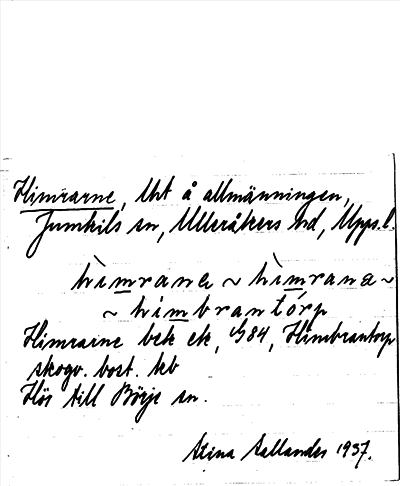 Himrarne, lht å allmänningen,
Jumkils sn, Ulleråkers hd, Upps.l.
hìmrana ~ hìmrana ~
~ hímbrantórp
Himrarne bek ek, GS84, Himbrantorp
skogv. bost. kb
Hör till Börje sn.
Stina Sallander 1937.